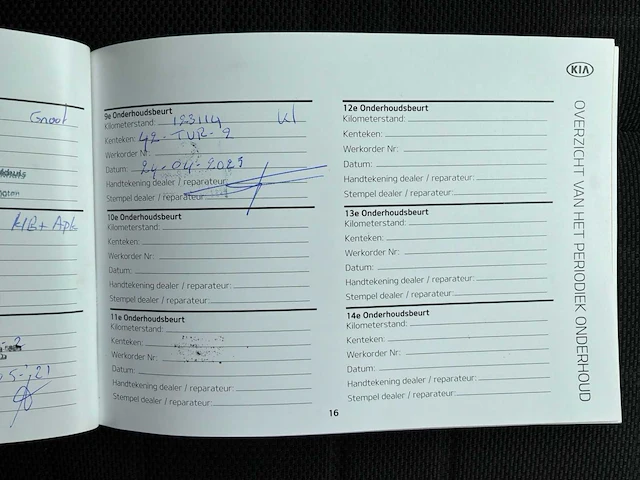 Groot
KLB+ Apk
2
5-'21
KIA
OVERZICHT VAN HET PERIODIEK ONDERHOUD
9e Onderhoudsbeurt
Kilometerstand: 123114 Kl
Kenteken: 42-TUR-2
Werkorder Nr:
Datum: 24-04-2025
Handtekening dealer / reparateur:
Stempel dealer / reparateur:
10e Onderhoudsbeurt
Kilometerstand:
Kenteken:
Werkorder Nr:
Datum:
Handtekening dealer / reparateur:
Stempel dealer / reparateur:
11e Onderhoudsbeurt
Kilometerstand:
Kenteken:
Werkorder Nr:
Datum:
Handtekening dealer / reparateur:
Stempel dealer / reparateur:
12e Onderhoudsbeurt
Kilometerstand:
Kenteken:
Werkorder Nr:
Datum:
Handtekening dealer / reparateur:
Stempel dealer / reparateur:
13e Onderhoudsbeurt
Kilometerstand:
Kenteken:
Werkorder Nr:
Datum:
Handtekening dealer / reparateur:
Stempel dealer / reparateur:
14e Onderhoudsbeurt
Kilometerstand:
Kenteken:
Werkorder Nr:
Datum:
Handtekening dealer / reparateur:
Stempel dealer / reparateur:
16